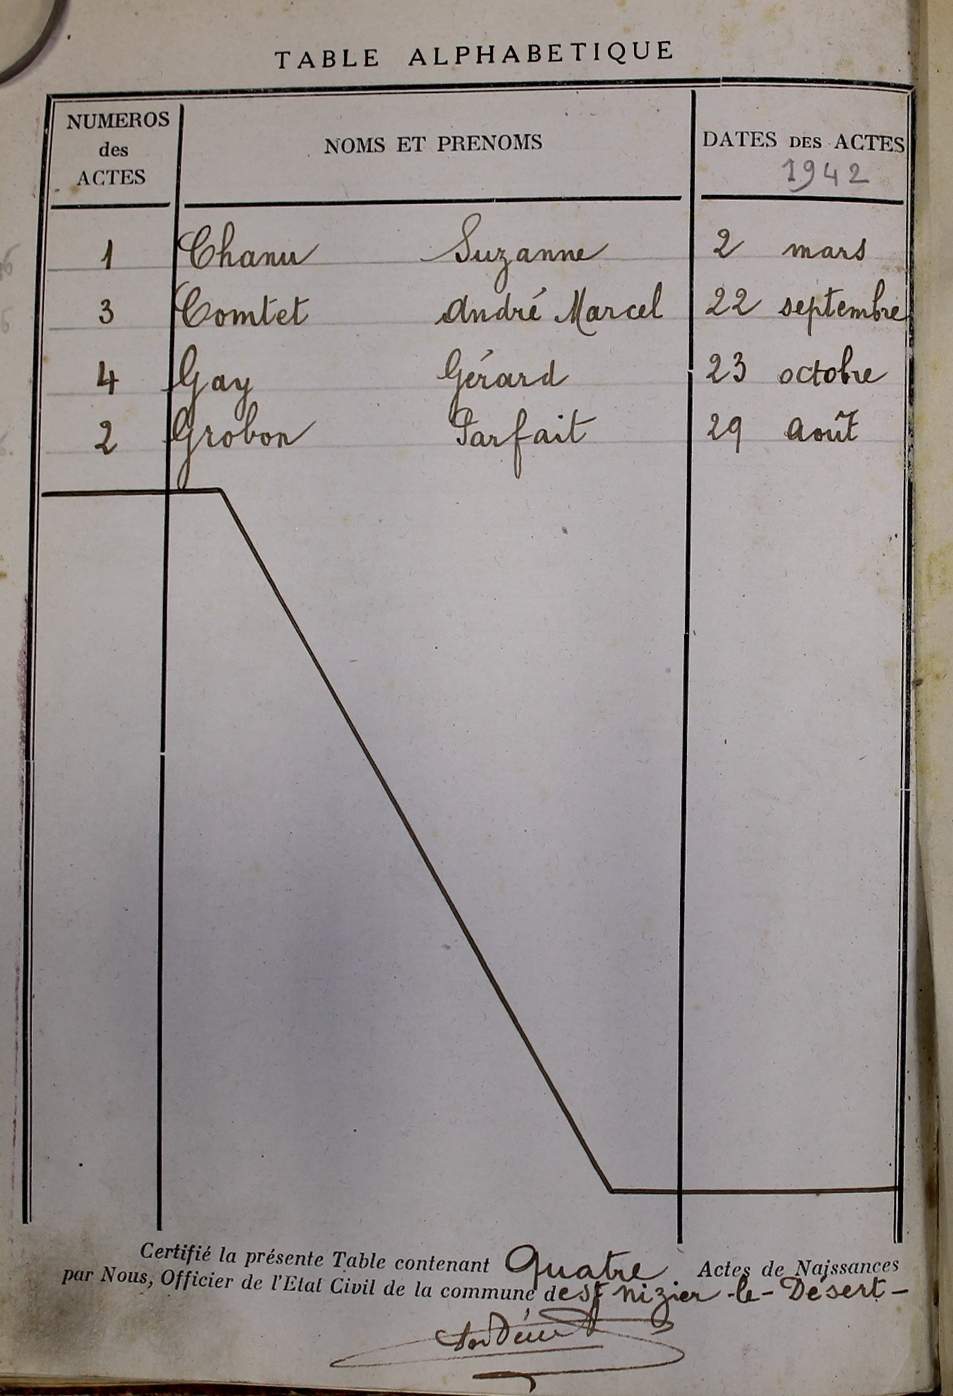 TABLE ALPHABETIQUE
NUMEROS des ACTES NOMS ET PRENOMS DATES DES ACTES
1942
1 Chanu Suzanne 2 mars
3 Comtet André Marcel 22 septembre
4 Gay Gérard 23 octobre
2 Grobon Parfait 29 août
Certifié la présente Table contenant Quatre Actes de Naissances
par Nous, Officier de l'Etat Civil de la commune de St Nizier-le-Désert-